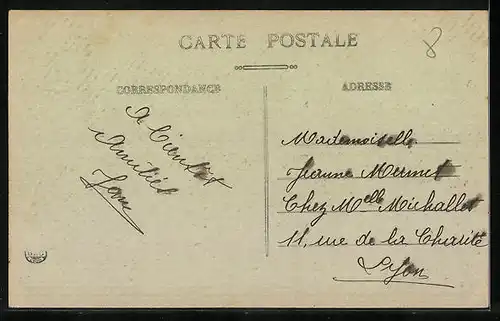 8
CARTE POSTALE
CORRESPONDANCE
ADRESSE
A bientôt
Amitiés
Mademoiselle
Jeanne Mermet
Chez Melle Michallet
11, rue de la Charité
Lyon